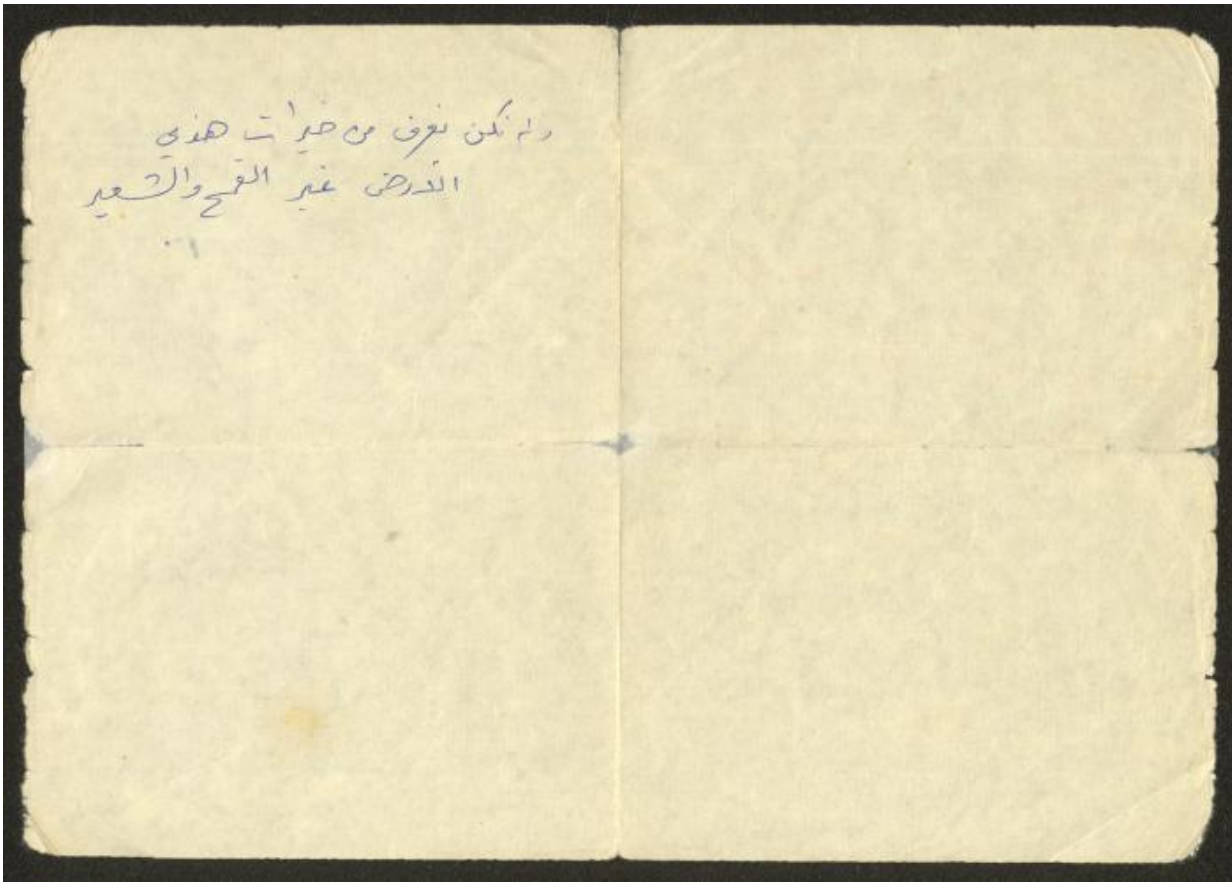 ولم نكن نعرف من خيرات هذي
الأرض غير القمح والشعير